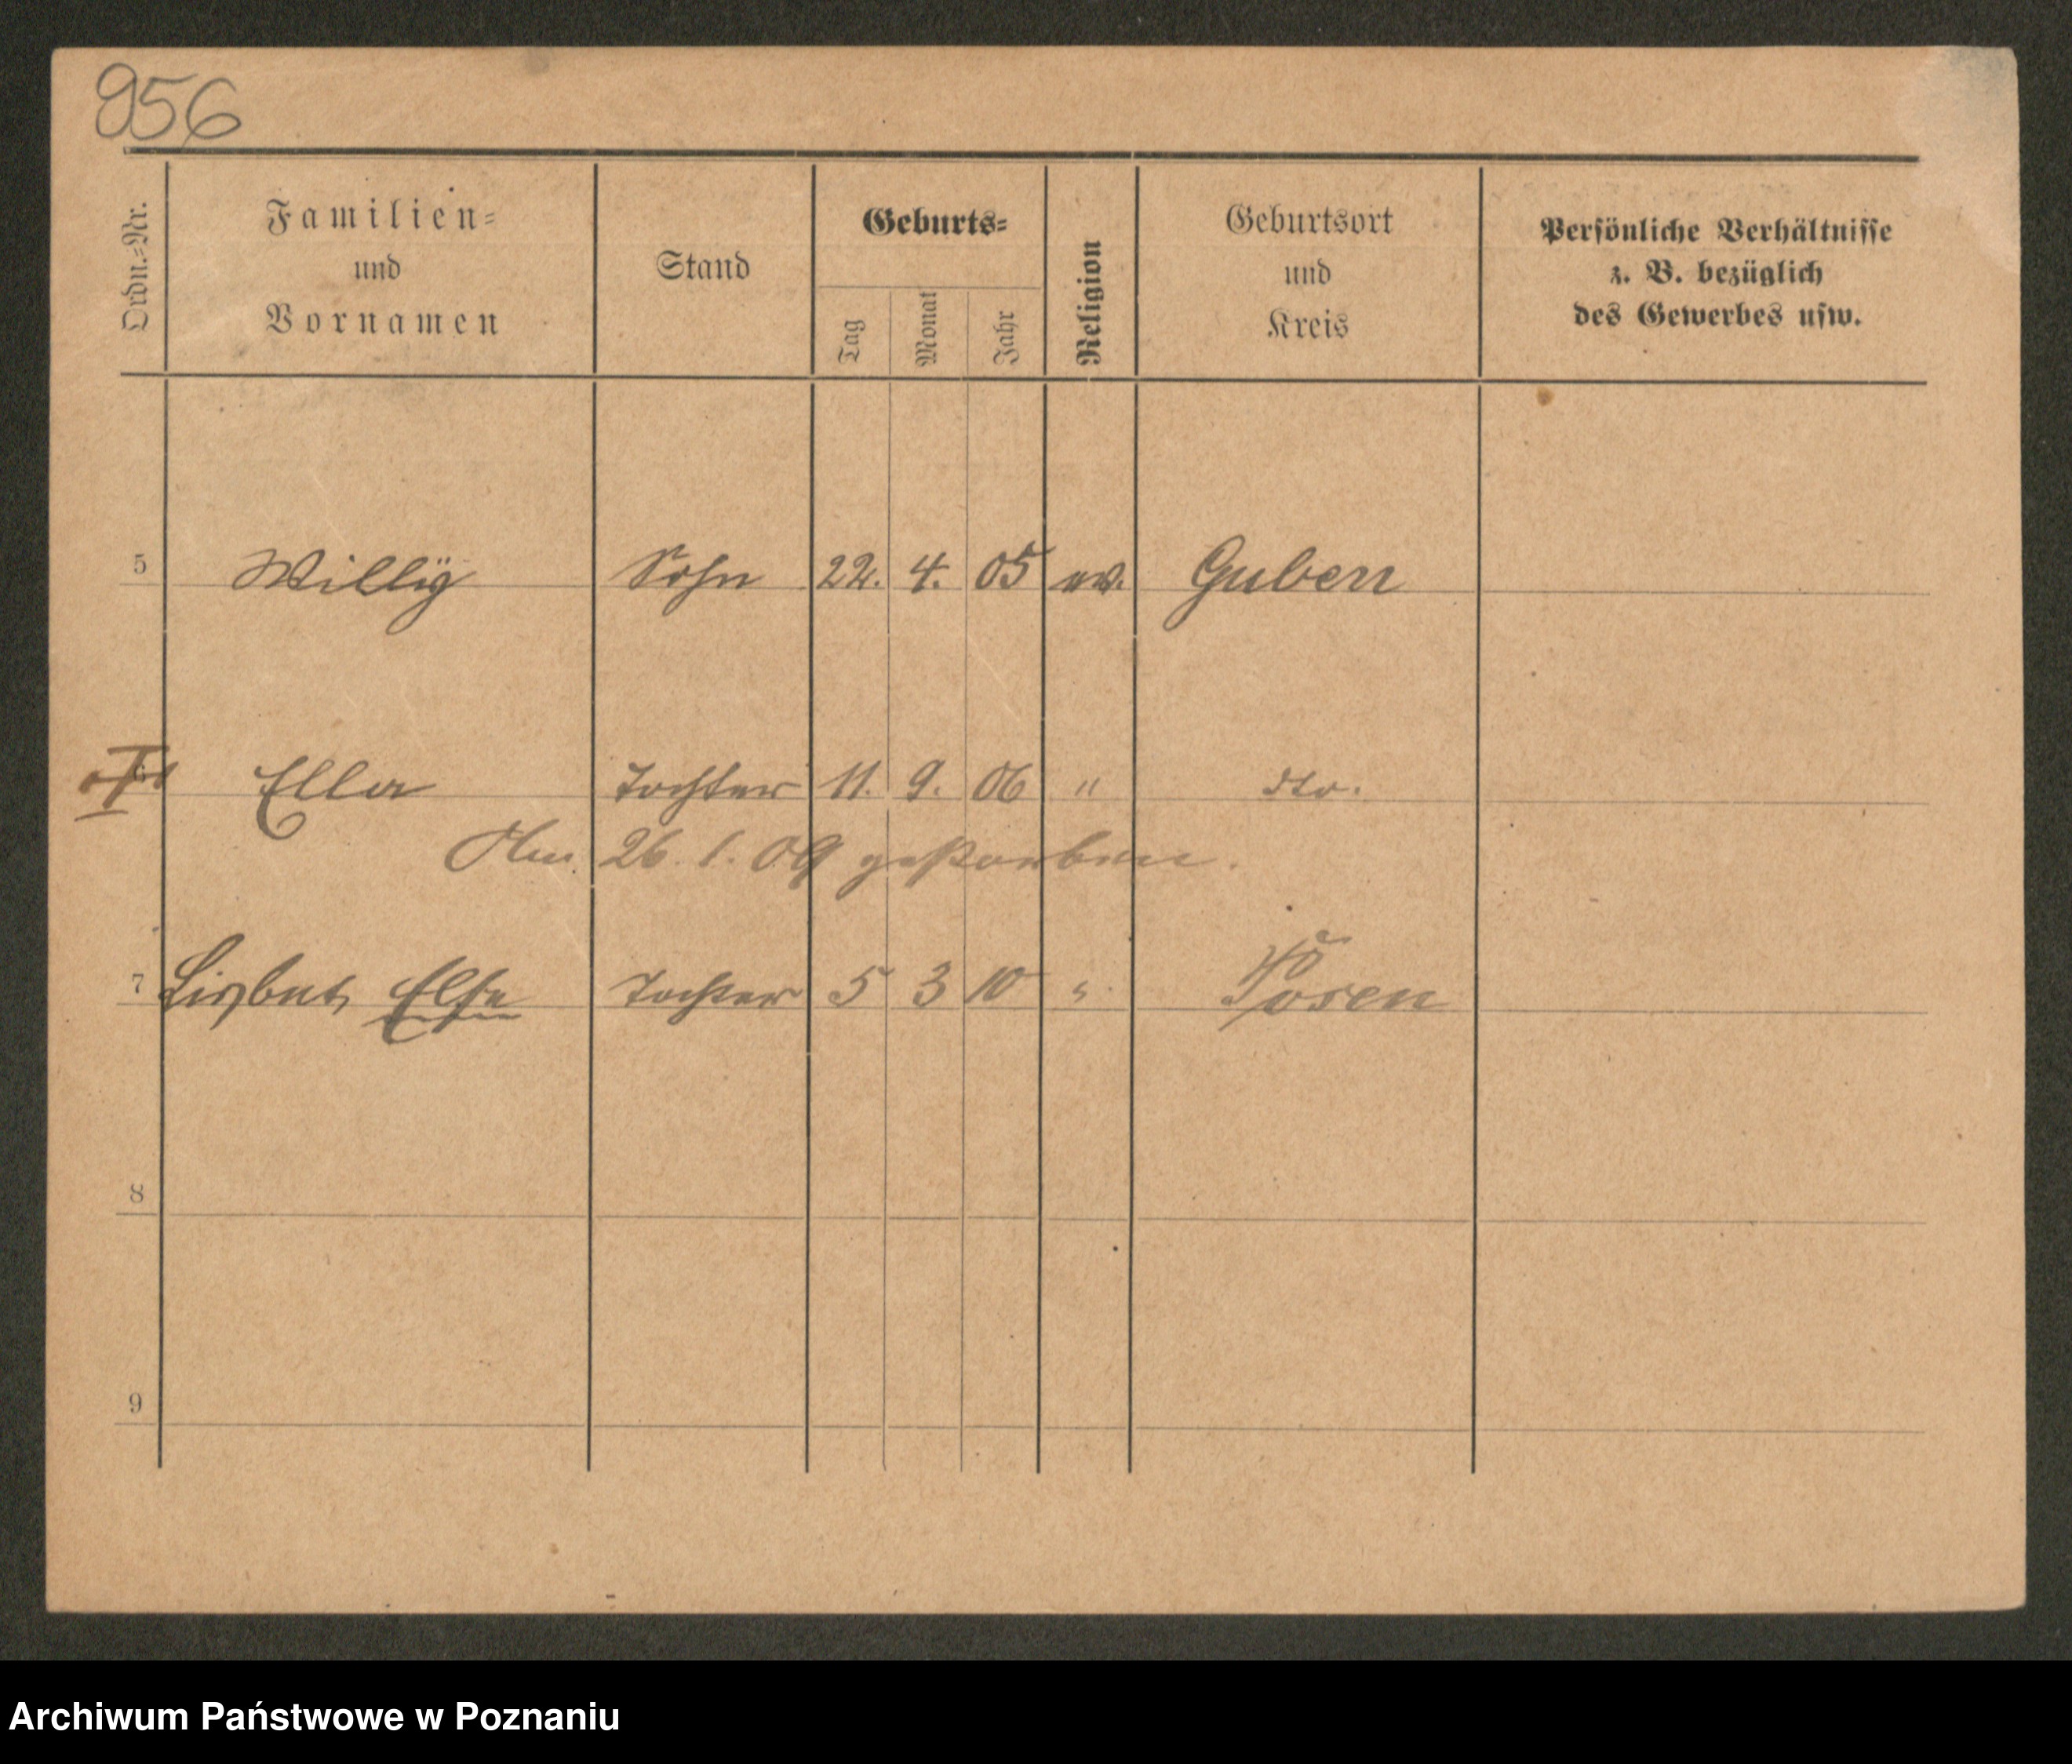 956
Ordn.-Nr.
Familien-
und
Vornamen
Stand
Geburts-
Tag
Monat
Jahr
Religion
Geburtsort
und
Kreis
Persönliche Verhältnisse
z. B. bezüglich
des Gewerbes usw.
5 Willÿ Sohn 22. 4. 05 ev. Guben
6 Ella Tochter 11. 9. 06 " dto.
Am 26. 1. 09 gestorben.
7 Lisbet, Else Tochter 5 3 10 " Posen
8
9
Archiwum Państwowe w Poznaniu